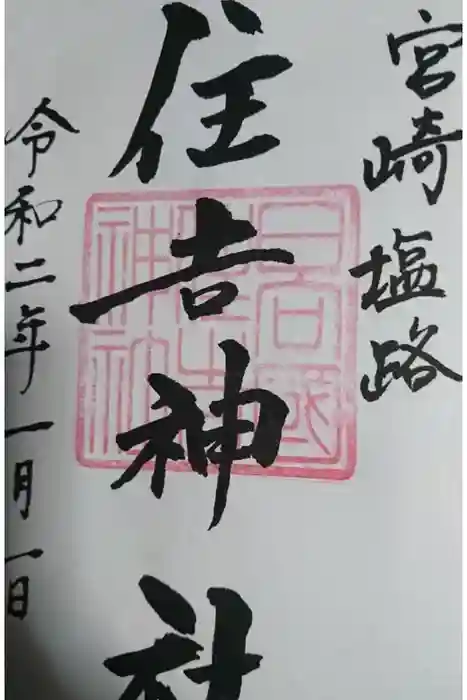 宮崎塩路
住吉神社
令和二年一月一日